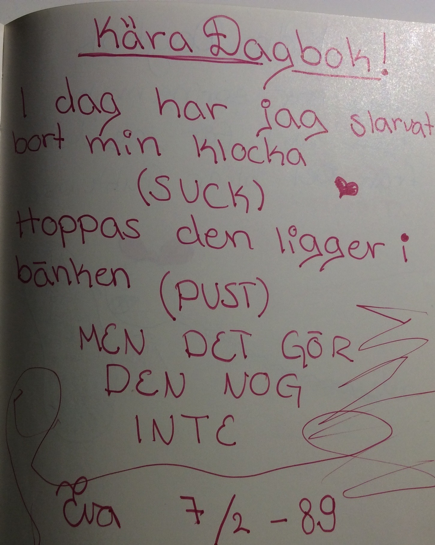 Kära Dagbok!
I dag har jag slarvat
bort min klocka
(SUCK)
Hoppas den ligger i
bänken (PUST)
MEN DET GÖR
DEN NOG
INTE
Eva 7/2-89